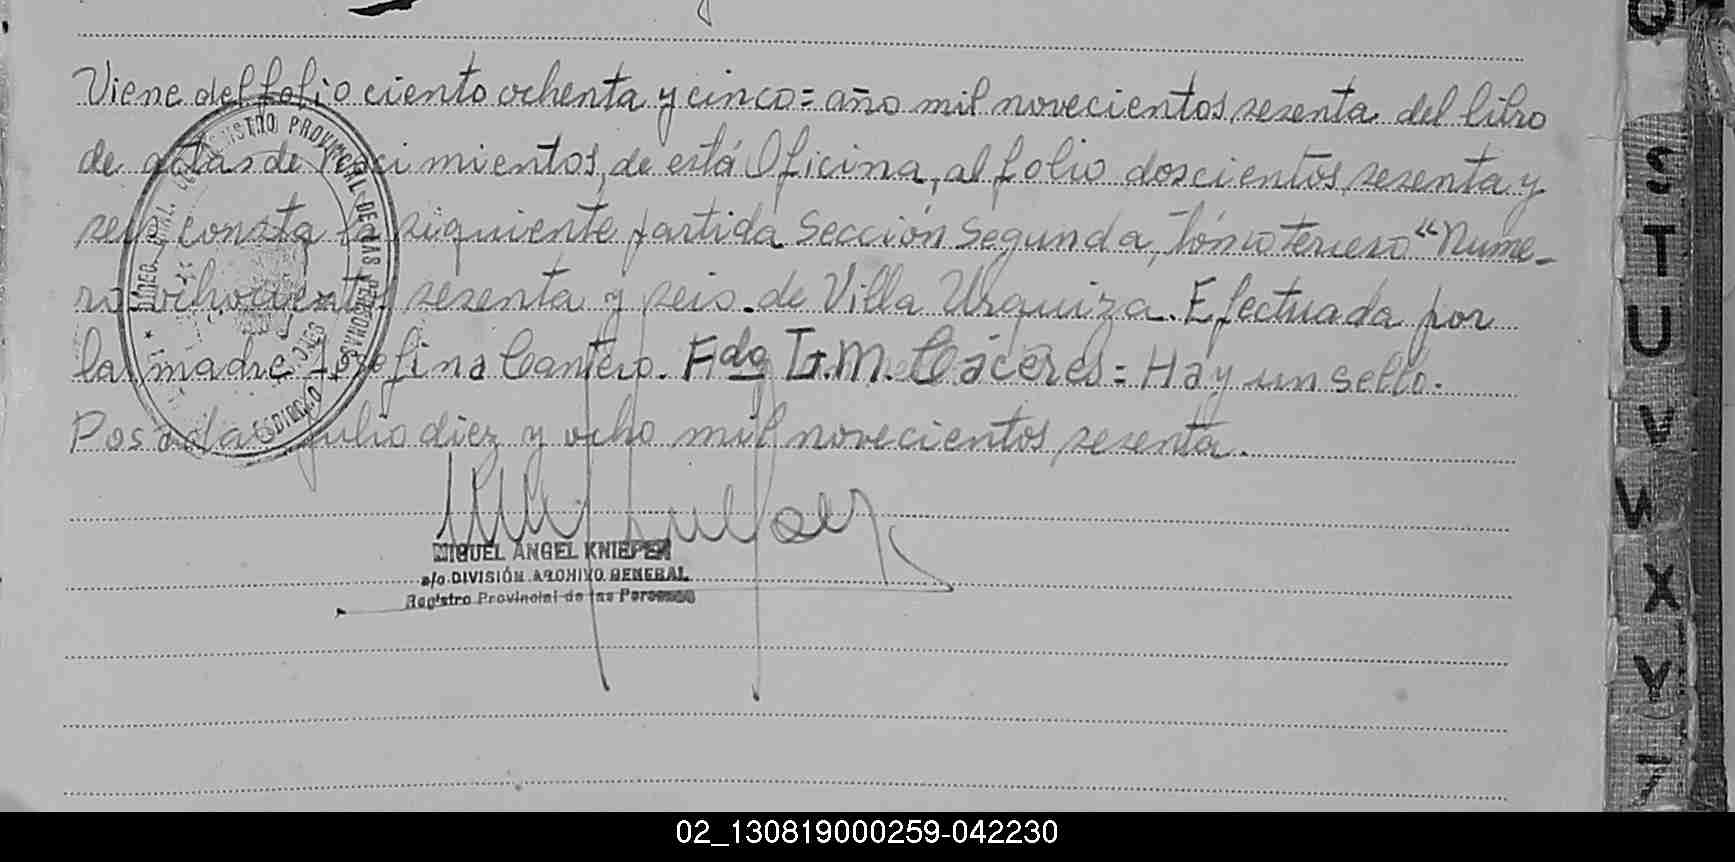 Viene del folio ciento ochenta y cinco = año mil novecientos sesenta del libro
de actas de nacimientos, de está Oficina, al folio doscientos sesenta y
seis consta la siguiente partida Sección Segunda, Tómo tercero "Nume-
ro ochocientos sesenta y seis. de Villa Urquiza. Efectuada por
la madre Josefina Cantero. Fdo G.M. Cáceres = Hay un sello.
Posadas julio diez y ocho mil novecientos sesenta.
MIGUEL ANGEL
a/c DIVISIÓN ARCHIVO GENERAL
Registro Provincial de las Personas
REGISTRO PROVINCIAL DE LAS PERSONAS
Q
S
T
U
V
W
X
Y
02_130819000259-042230